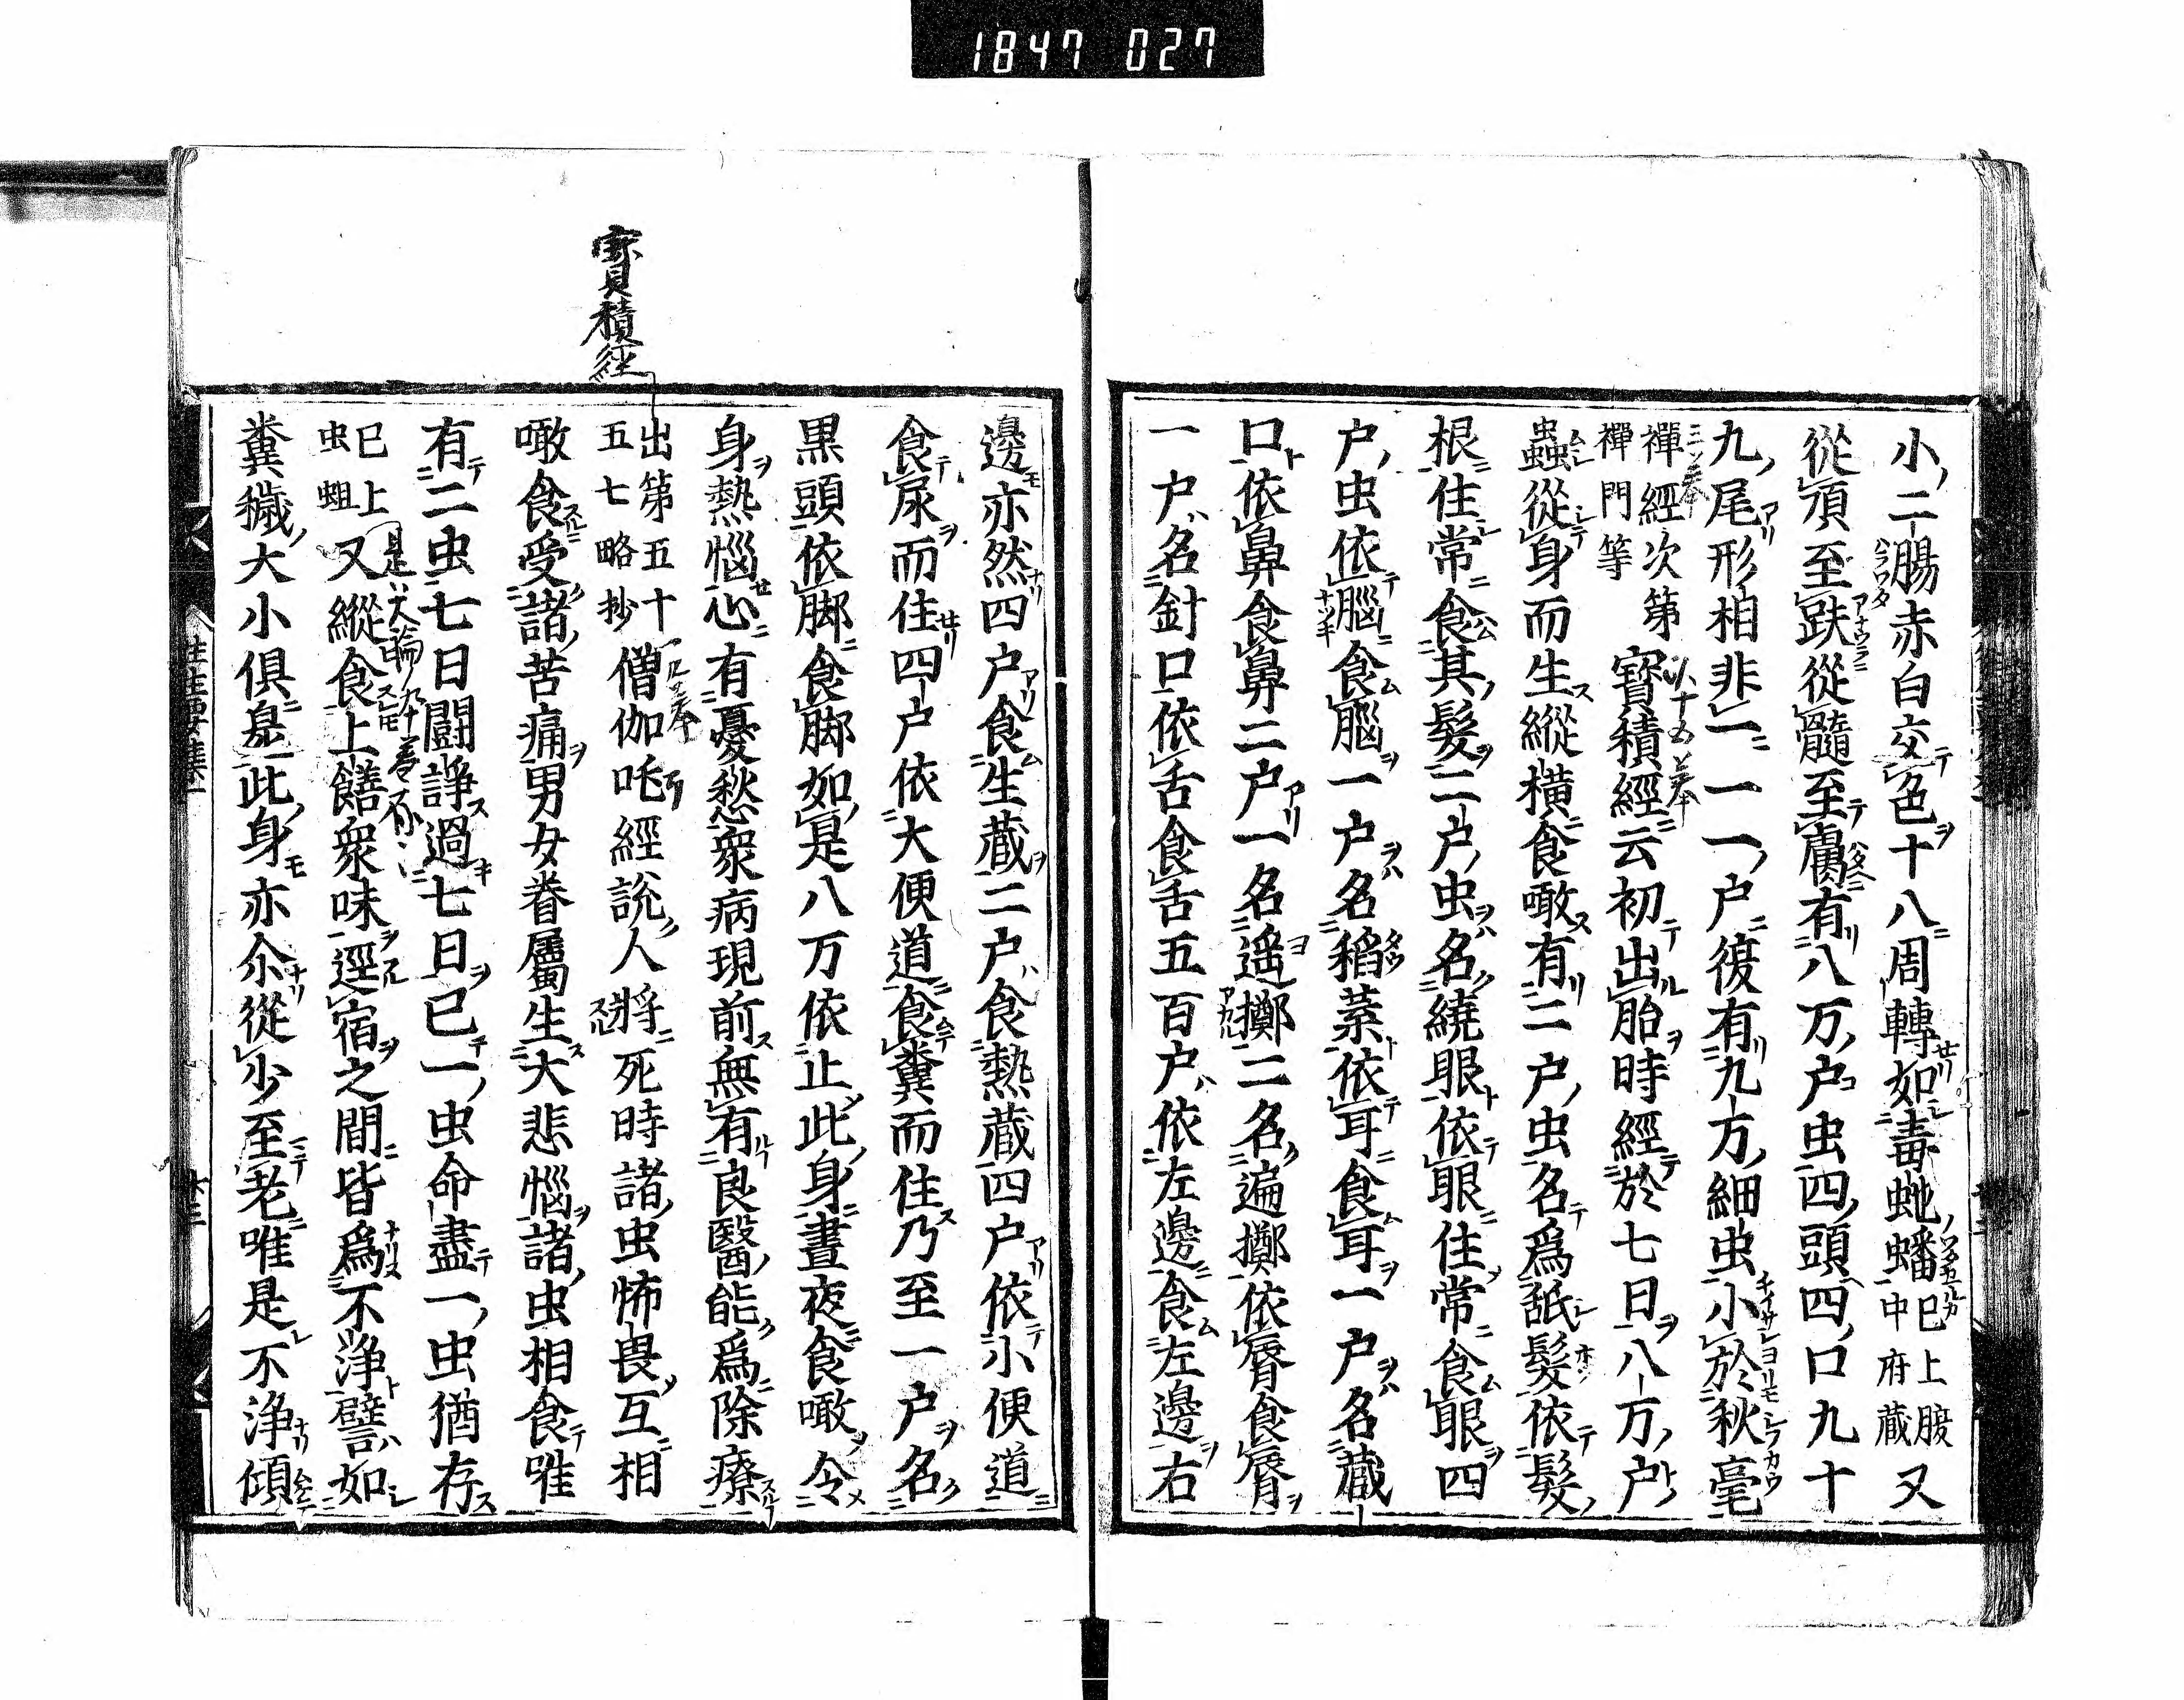 1847 027
小二腸赤白交色十八周轉如毒虵蟠 已上腹中府藏 又
從頂至趺從髓至膚有八万户虫四頭四口九十
九尾形相非一一一户復有九万細虫小於秋毫
禪經次第禪門等 寶積經云初出胎時經於七日八万户
蟲從身而生縱横食噉有二户虫名爲舐髮依髮
根住常食其髮二户虫名繞眼依眼住常食眼四
户虫依腦食腦一户名稻葉依耳食耳一户名藏
口依鼻食鼻二户一名遥擲二名遍擲依脣食脣
一户名針口依舌食舌五百户依左邊食左邊右
邊亦然四户食生藏二户食熱藏四户依小便道
食尿而住四户依大便道食糞而住乃至一户名
黒頭依脚食脚如是八万依止此身晝夜食噉令
身熱惱心有憂愁衆病現前無有良醫能爲除療
寶積經
出第五十五七略抄 僧伽吒經說人將死時諸虫怖畏互相
噉食受諸苦痛男女眷屬生大悲惱諸虫相食唯
有二虫七日鬪諍過七日已一虫命盡一虫猶存
已上虫蛆 又縱食上饍衆味逕宿之間皆爲不淨譬如
糞穢大小俱臰此身亦尒從少至老唯是不淨傾